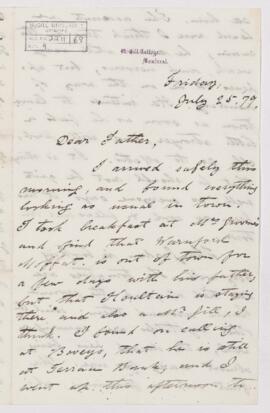 McGill College,
Montreal.
Friday,
July 25. 79.
Dear Father,
I arrived safely this
morning, and found everything
looking as usual in town.
I took breakfast at Mrs
and find that Warnford
Moffat is out of town for
a few days with his father,
but that Mountain is staying
there and also a Mr Gill, I
think. I found on calling
at Boveys, that he is still
at Terrace Bank, and I
went up this afternoon to